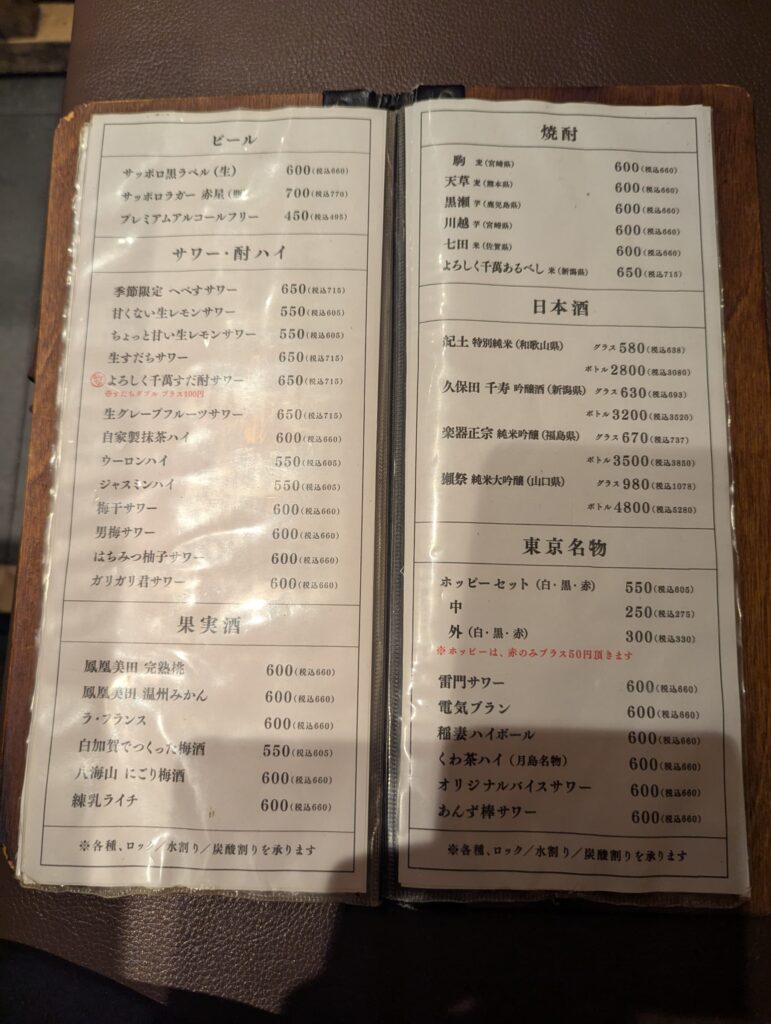 ビール
サッポロ黒ラベル（生） 600（税込660）
サッポロラガー 赤星 700（税込770）
プレミアムアルコールフリー 450（税込495）
サワー・酎ハイ
季節限定 へべすサワー 650（税込715）
甘くない生レモンサワー 550（税込605）
ちょっと甘い生レモンサワー 550（税込605）
生すだちサワー 650（税込715）
よろしく千萬すだ酎サワー 650（税込715）
※すだちダブル プラス100円
生グレープフルーツサワー 650（税込715）
自家製抹茶ハイ 600（税込660）
ウーロンハイ 550（税込605）
ジャスミンハイ 550（税込605）
梅干サワー 600（税込660）
男梅サワー 600（税込660）
はちみつ柚子サワー 600（税込660）
ガリガリ君サワー 600（税込660）
果実酒
鳳凰美田 完熟桃 600（税込660）
鳳凰美田 温州みかん 600（税込660）
ラ・フランス 600（税込660）
白加賀でつくった梅酒 550（税込605）
八海山 にごり梅酒 600（税込660）
練乳ライチ 600（税込660）
※各種、ロック／水割り／炭酸割りを承ります
焼酎
駒 麦（宮崎県） 600（税込660）
天草 麦（熊本県） 600（税込660）
黒瀬 芋（鹿児島県） 600（税込660）
川越 芋（宮崎県） 600（税込660）
七田 米（佐賀県） 600（税込660）
よろしく千萬あるべし 米（新潟県） 650（税込715）
日本酒
紀土 特別純米（和歌山県） グラス 580（税込638）
ボトル 2800（税込3080）
久保田 千寿 吟醸酒（新潟県） グラス 630（税込693）
ボトル 3200（税込3520）
楽器正宗 純米吟醸（福島県） グラス 670（税込737）
ボトル 3500（税込3850）
獺祭 純米大吟醸（山口県） グラス 980（税込1078）
ボトル 4800（税込5280）
東京名物
ホッピーセット（白・黒・赤） 550（税込605）
中 250（税込275）
外（白・黒・赤） 300（税込330）
※ホッピーは、赤のみプラス50円頂きます
雷門サワー 600（税込660）
電気ブラン 600（税込660）
稲妻ハイボール 600（税込660）
くわ茶ハイ（月島名物） 600（税込660）
オリジナルバイスサワー 600（税込660）
あんず棒サワー 600（税込660）
※各種、ロック／水割り／炭酸割りを承ります